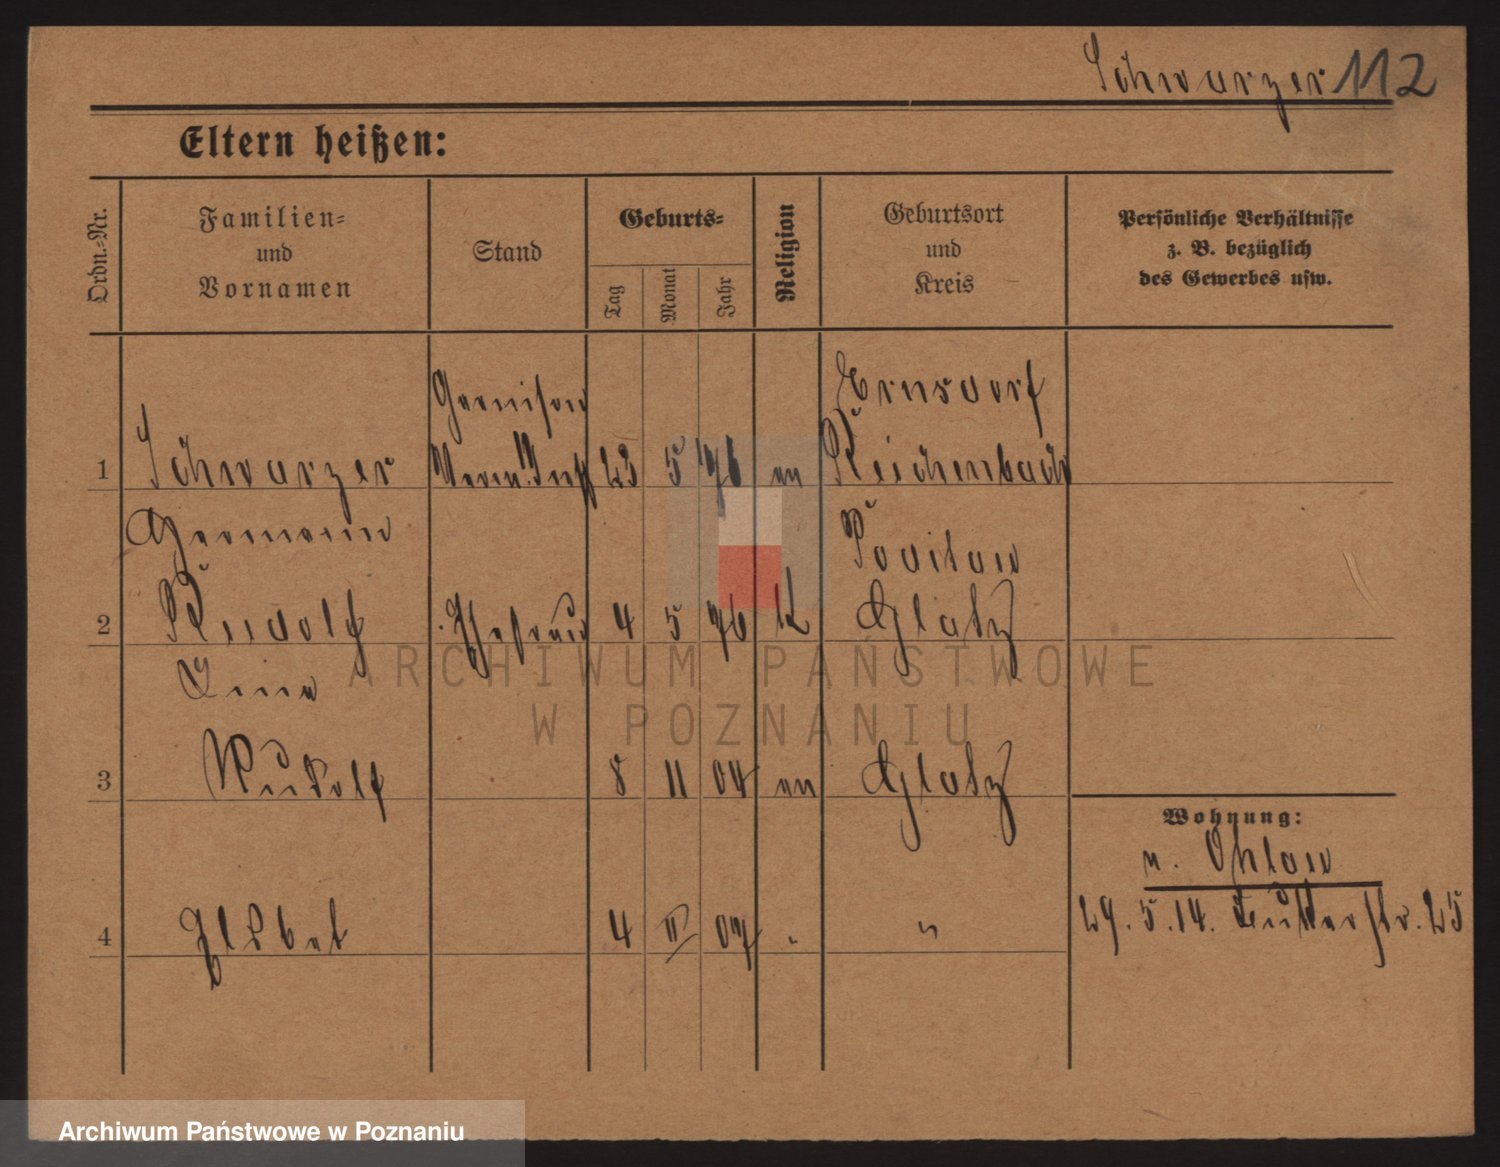 Schwarzer 112
Eltern heißen:
Ordn.-Nr.
Familien-
und
Vornamen
Stand
Geburts-
Tag
Monat
Jahr
Religion
Geburtsort
und
Kreis
Persönliche Verhältnisse
z. B. bezüglich
des Gewerbes usw.
Garnison Ernsdorf
1 Schwarzer 23 5 76 ev Reichenbach
Hermann
2 Rudolf Ehefrau 4 5 76 K Glatz
3 Rudolf 8 11 04 ev Glatz
Wohnung:
n. Ohlau
29. 5. 14. 25
4 Elsbet 4 II 07 " "
ARCHIWUM PAŃSTWOWE
W POZNANIU
Archiwum Państwowe w Poznaniu